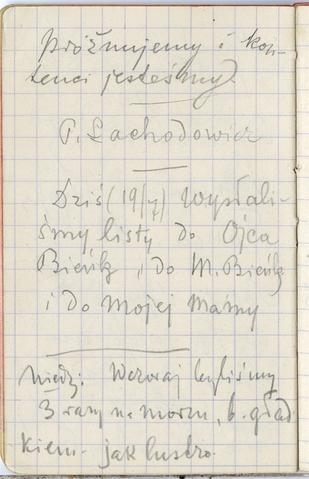 próżnujemy i kon-
tenci jesteśmy.
P. Lachodowicz
Dziś (19/7) wysłali-
śmy listy do Ojca
Bieńk, do M. Bieńk
i do Mojej Mamy
niedz: Wczoraj byliśmy
3 razy na morzu, b. gład
kiem - jak lustro.